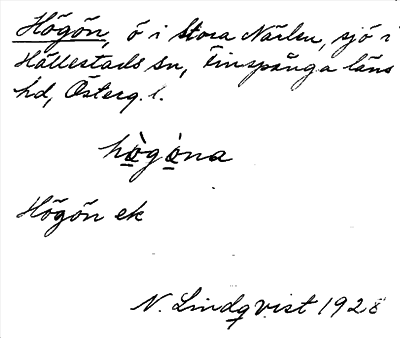 Högön, ö i Stora Närlen, sjö i
Hällestads sn, Finspånga läns
hd, Österg. l.
hò̲gò̲na
Högön ek
N. Lindqvist 1928